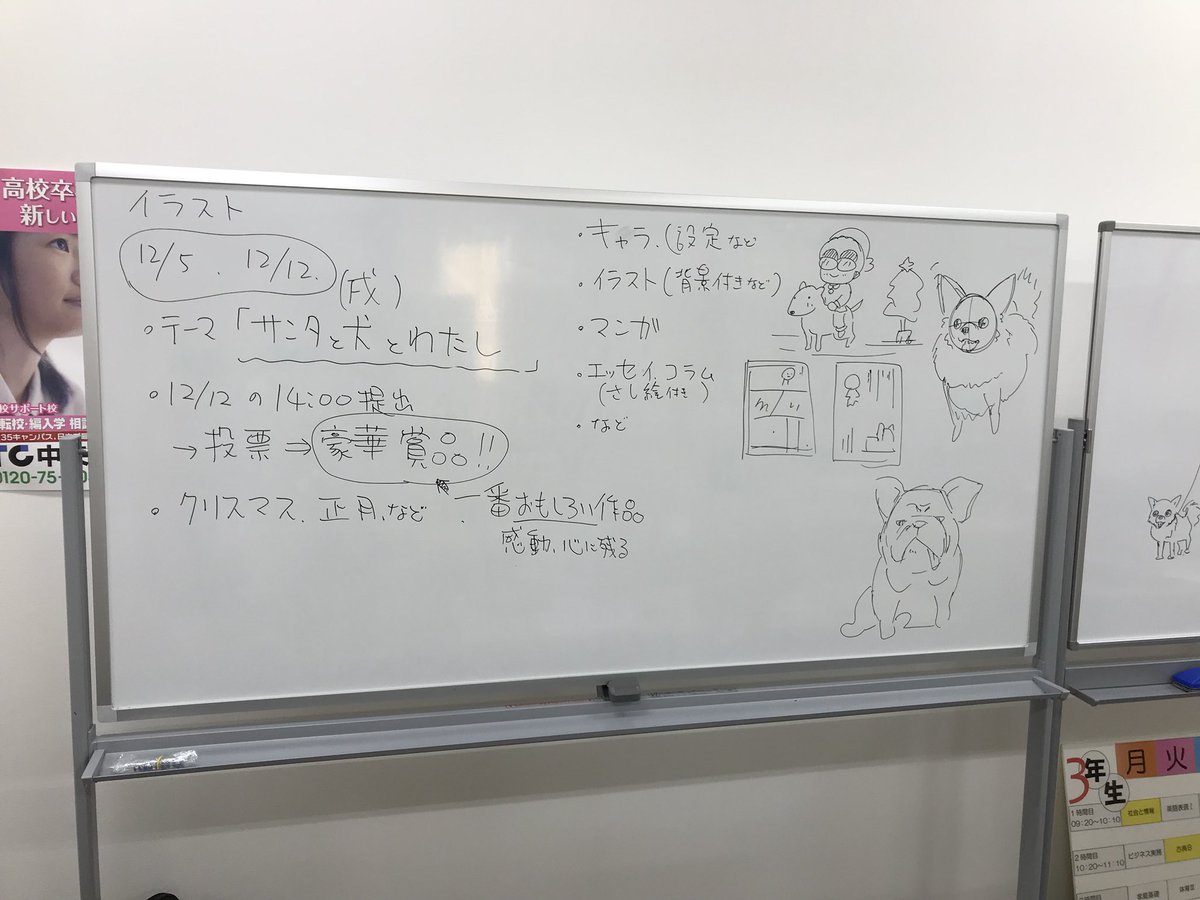 イラスト
12/5、12/12、
(戌)
・テーマ「サンタと犬とわたし」
・12/12の14:00提出
→投票⇒豪華賞品!!
・クリスマス、正月、など、一番おもしろい作品
感動、心に残る
・キャラ、(設定など
・イラスト(背景付きなど)
・マンガ
・エッセイ、コラム
(さし絵付き)
・など
高校卒
新しい
校サポート校
転校・編入学 相談
35キャンパス
中央
0120-75-
3年生
月
火
1時間目
09:20~10:10
社会と情報
英語表現I
2時間目
10:20~11:10
ビジネス実務
古典B
家庭基礎
体育III